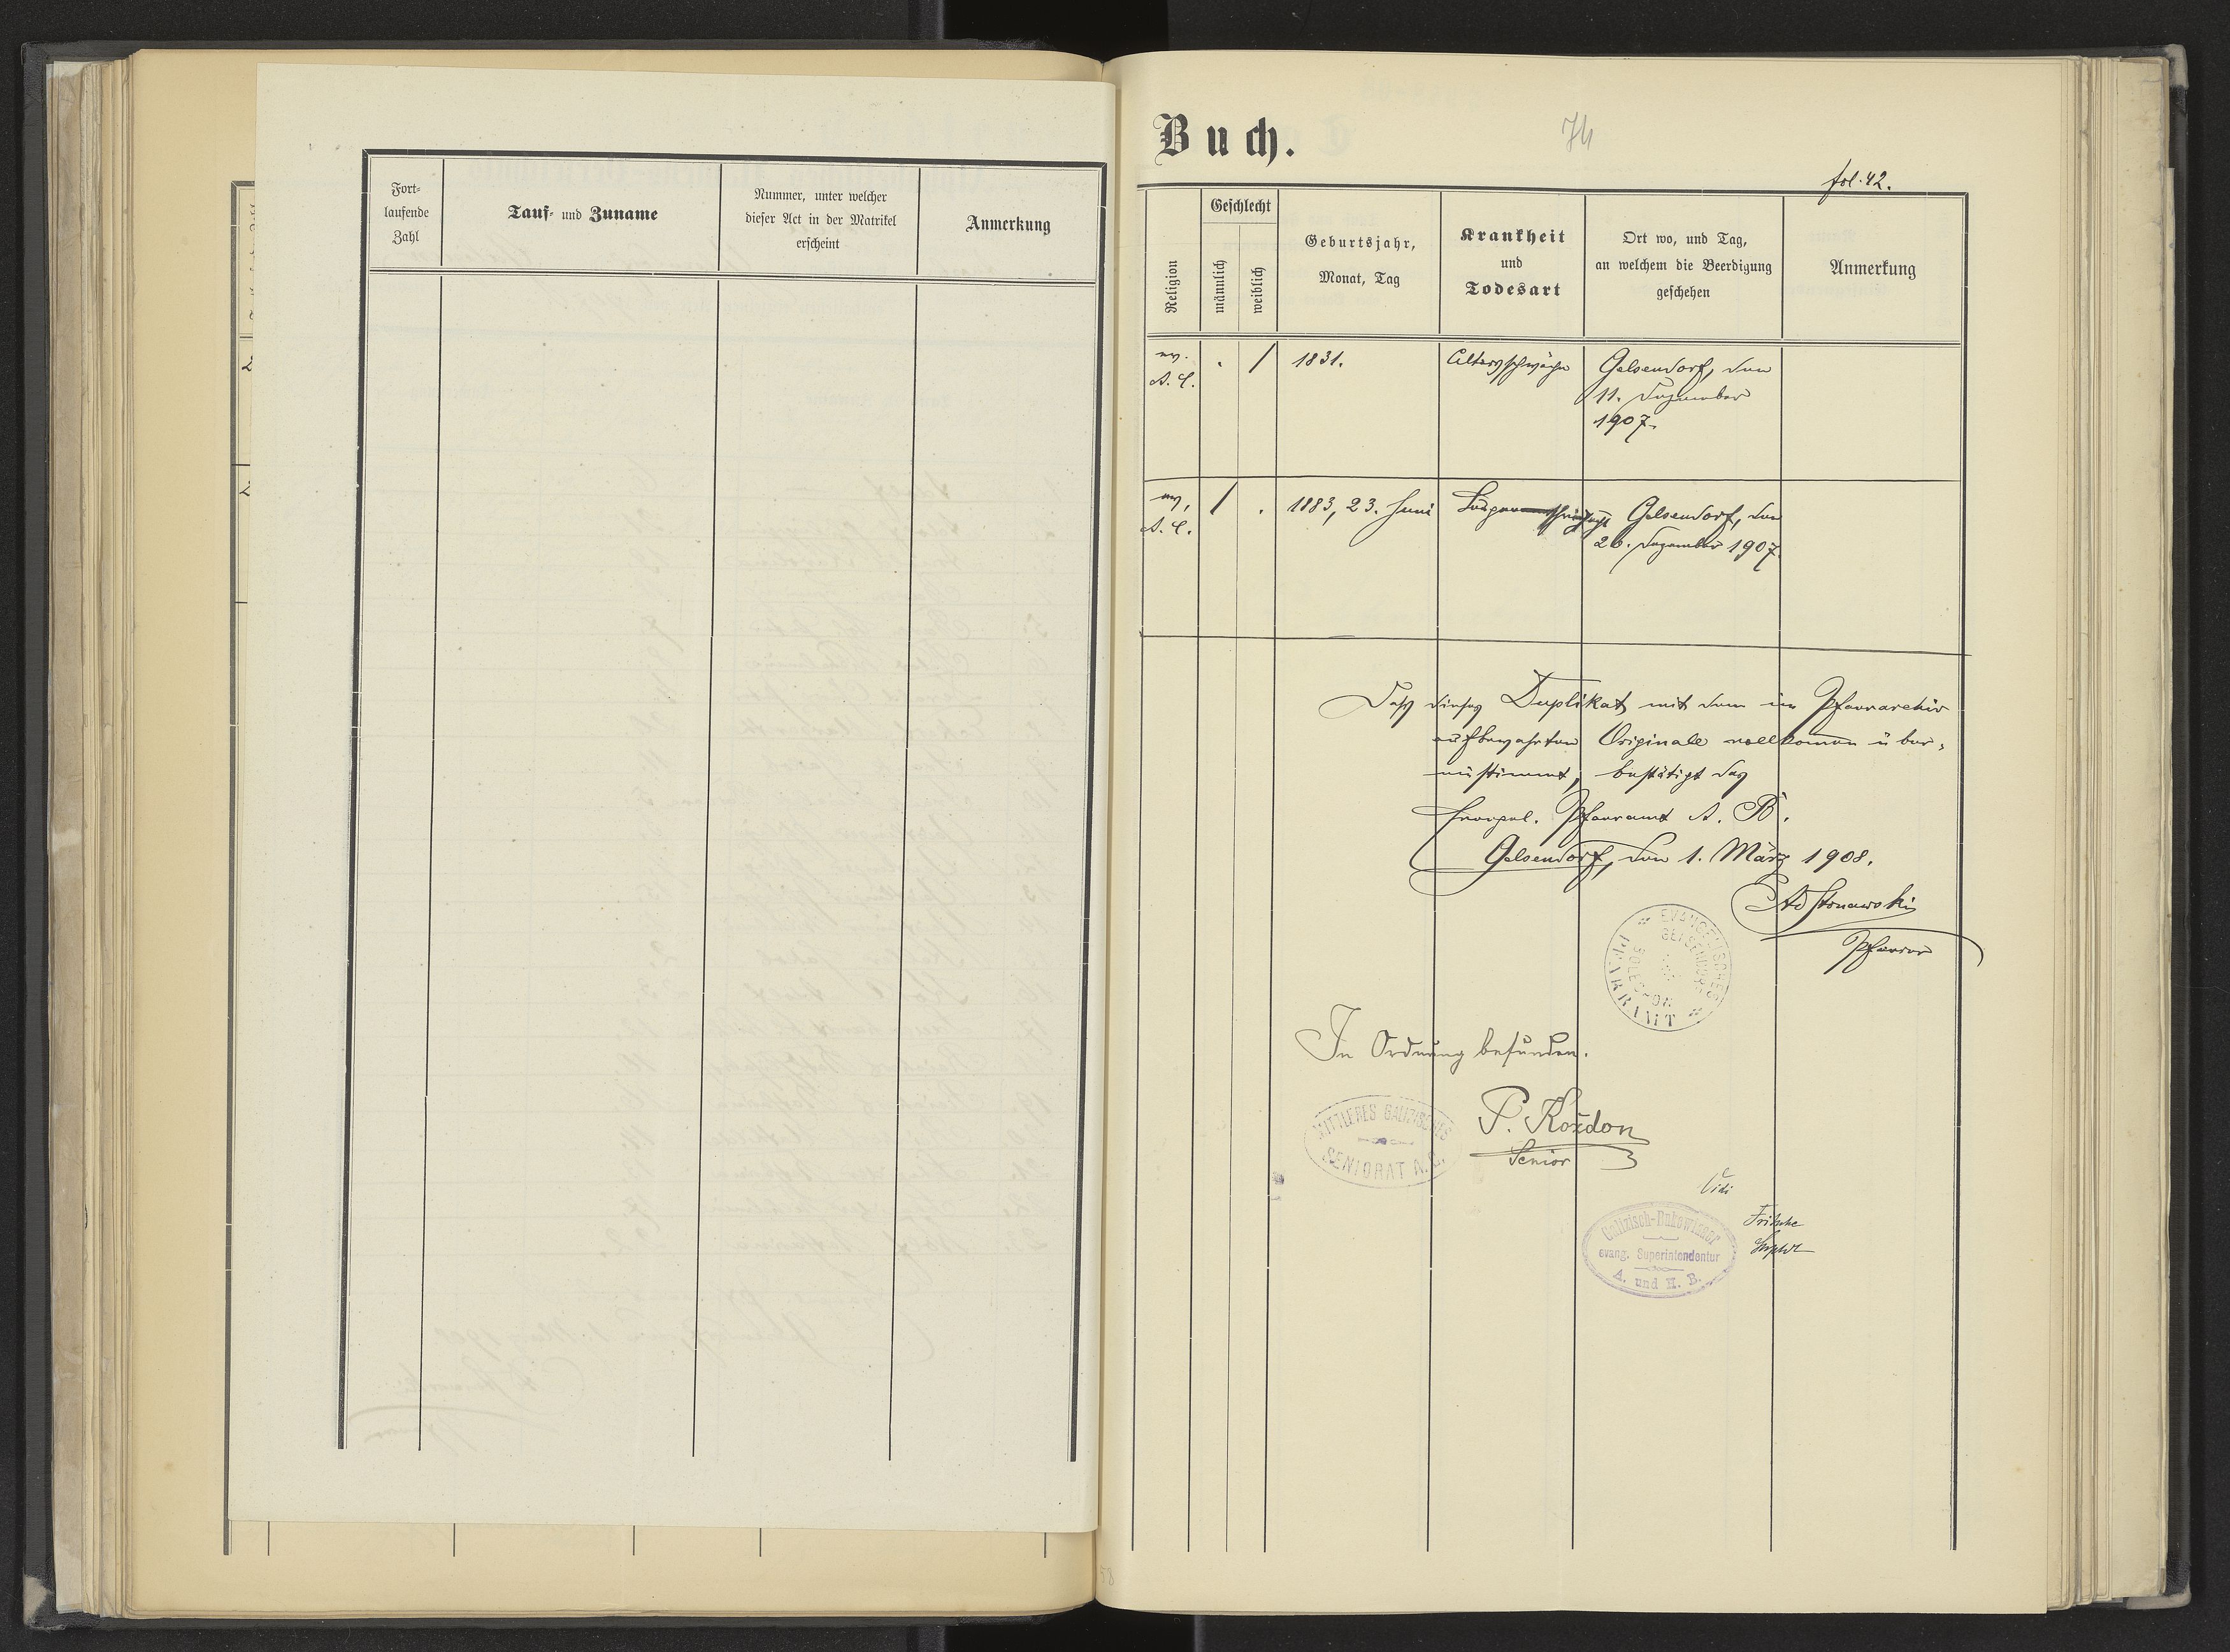 Fort-
laufende
Zahl
Tauf- und Zuname
Nummer, unter welcher
dieser Act in der Matrikel
erscheint
Anmerkung
Buch.
74
fol. 42.
Religion
Geschlecht
männlich
weiblich
Geburtsjahr,
Monat, Tag
Krankheit
und
Todesart
Ort wo, und Tag,
an welchem die Beerdigung
geschehen
Anmerkung
ev.
A. C.
. /
1831.
Altersschwäche
Gelsendorf, den
11. Dezember
1907.
ev.
A. C.
/ .
1883, 23. Juni
Gelsendorf, den
26. Dezember 1907.
Dass dieses Duplikat mit dem im Pfarrarchiv
aufbewahrten Originale vollkommen über-
einstimmt, bestätigt das
Evangel. Pfarramt A. B.
Gelsendorf, den 1. März 1908.
Ad Stonawski
Pfarrer
EVANGELISCHES
PFARRAMT
GELSENDORF
In Ordnung befunden.
MITTLERES GALIZISCHES
SENIORAT A. C.
P. Kożdon
Senior
Vidi
Fritsche
Suptdt
Galizisch-Bukowinaer
evang. Superintendentur
A. und H. B.